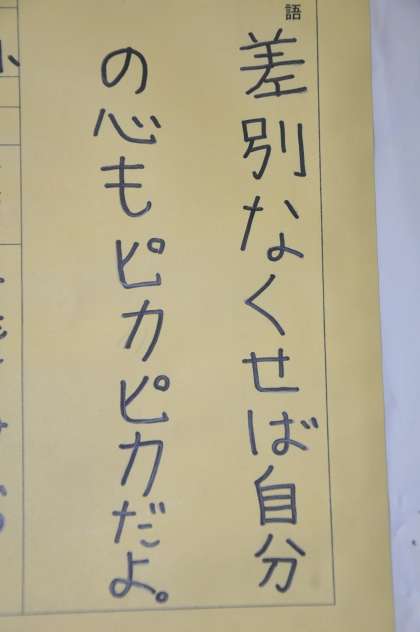 語
差別なくせば自分
の心もピカピカだよ。